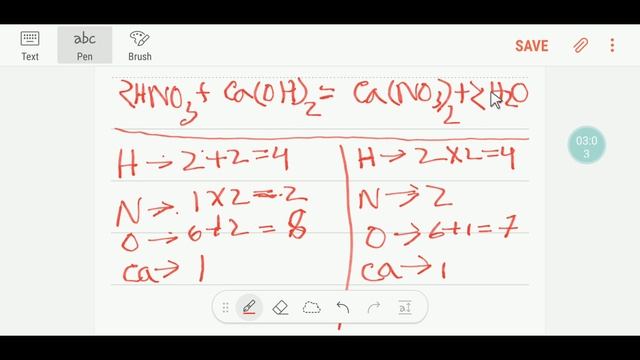 abc
Text Pen Brush SAVE
2HNO3 + Ca(OH)2 = Ca(NO3)2 + 2H2O
03:03
H → 2 + 2 = 4
H → 2 × 2 = 4
N → 1 × 2 = 2
N → 2
O → 6 + 2 = 8
O → 6 + 1 = 7
Ca → 1
Ca → 1